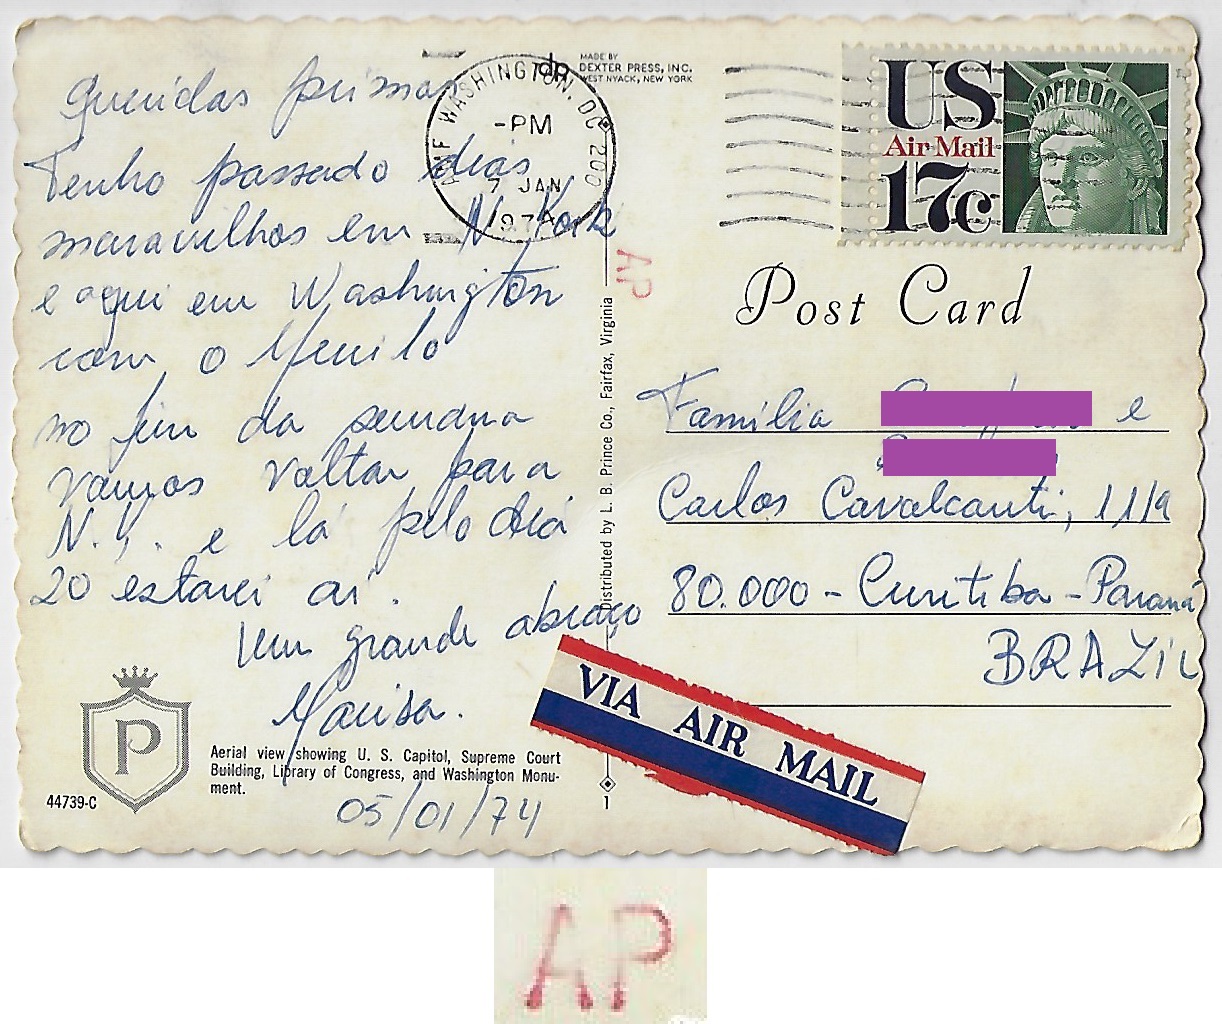 Queridas primas
Tenho passado dias
maravilhos em N. York
e aqui em Washington
com o Murilo
no fim da semana
vamos voltar para
N.Y. e lá pelo dia
20 estarei aí.
Um grande abraço
Marisa.
05/01/74
P
Aerial view showing U. S. Capitol, Supreme Court
Building, Library of Congress, and Washington Monu-
ment.
44739-C
WASHINGTON, DC 200
-PM
7 JAN
1974
MADE BY
DEXTER PRESS, INC.
WEST NYACK, NEW YORK
AP
Distributed by L. B. Prince Co., Fairfax, Virginia
1
US
Air Mail
17c
Post Card
Família e
Carlos Cavalcanti, 1119
80.000 - Curitiba - Paraná
BRAZIL
VIA AIR MAIL
AP